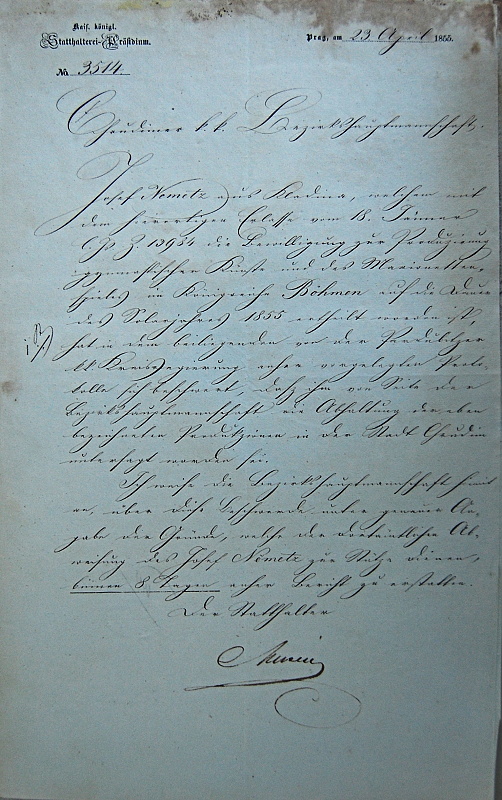 Kais. königl.
Statthalterei-Präsidium.
Prag, am 23 April 1855.
No 3514.
Chrudimer k. k. Bezirkshauptmannschaft.
Josef Nemetz aus Kladina, welchem mit
dem hierortigen Erlasse vom 18. Jänner
Z 13954 die Bewilligung zur Produzirung
gymnastischer Künste und des Marionetten-
spieles im Königreiche Böhmen auf die Dauer
des Solarjahres 1855 ertheilt worden ist,
hat in dem beiliegenden von der Pardubitzer
k.k. Kreisregierung anher vorgelegten Proto-
kolle sich beschwert, daß ihm von Seite der
Bezirkshauptmannschaft die Abhaltung der eben
bezeichneten Produkzionen in der Stadt Chrudim
untersagt worden sei.
Ich weise die Bezirkshauptmannschaft hiemit
an, über diese Beschwerde unter genauer An-
gabe der Gründe, welche der ortli Ab-
weisung des Josef Nemetz zur Stütze dienen,
binnen 8 Tagen anher Bericht zu erstatten.
Der Statthalter